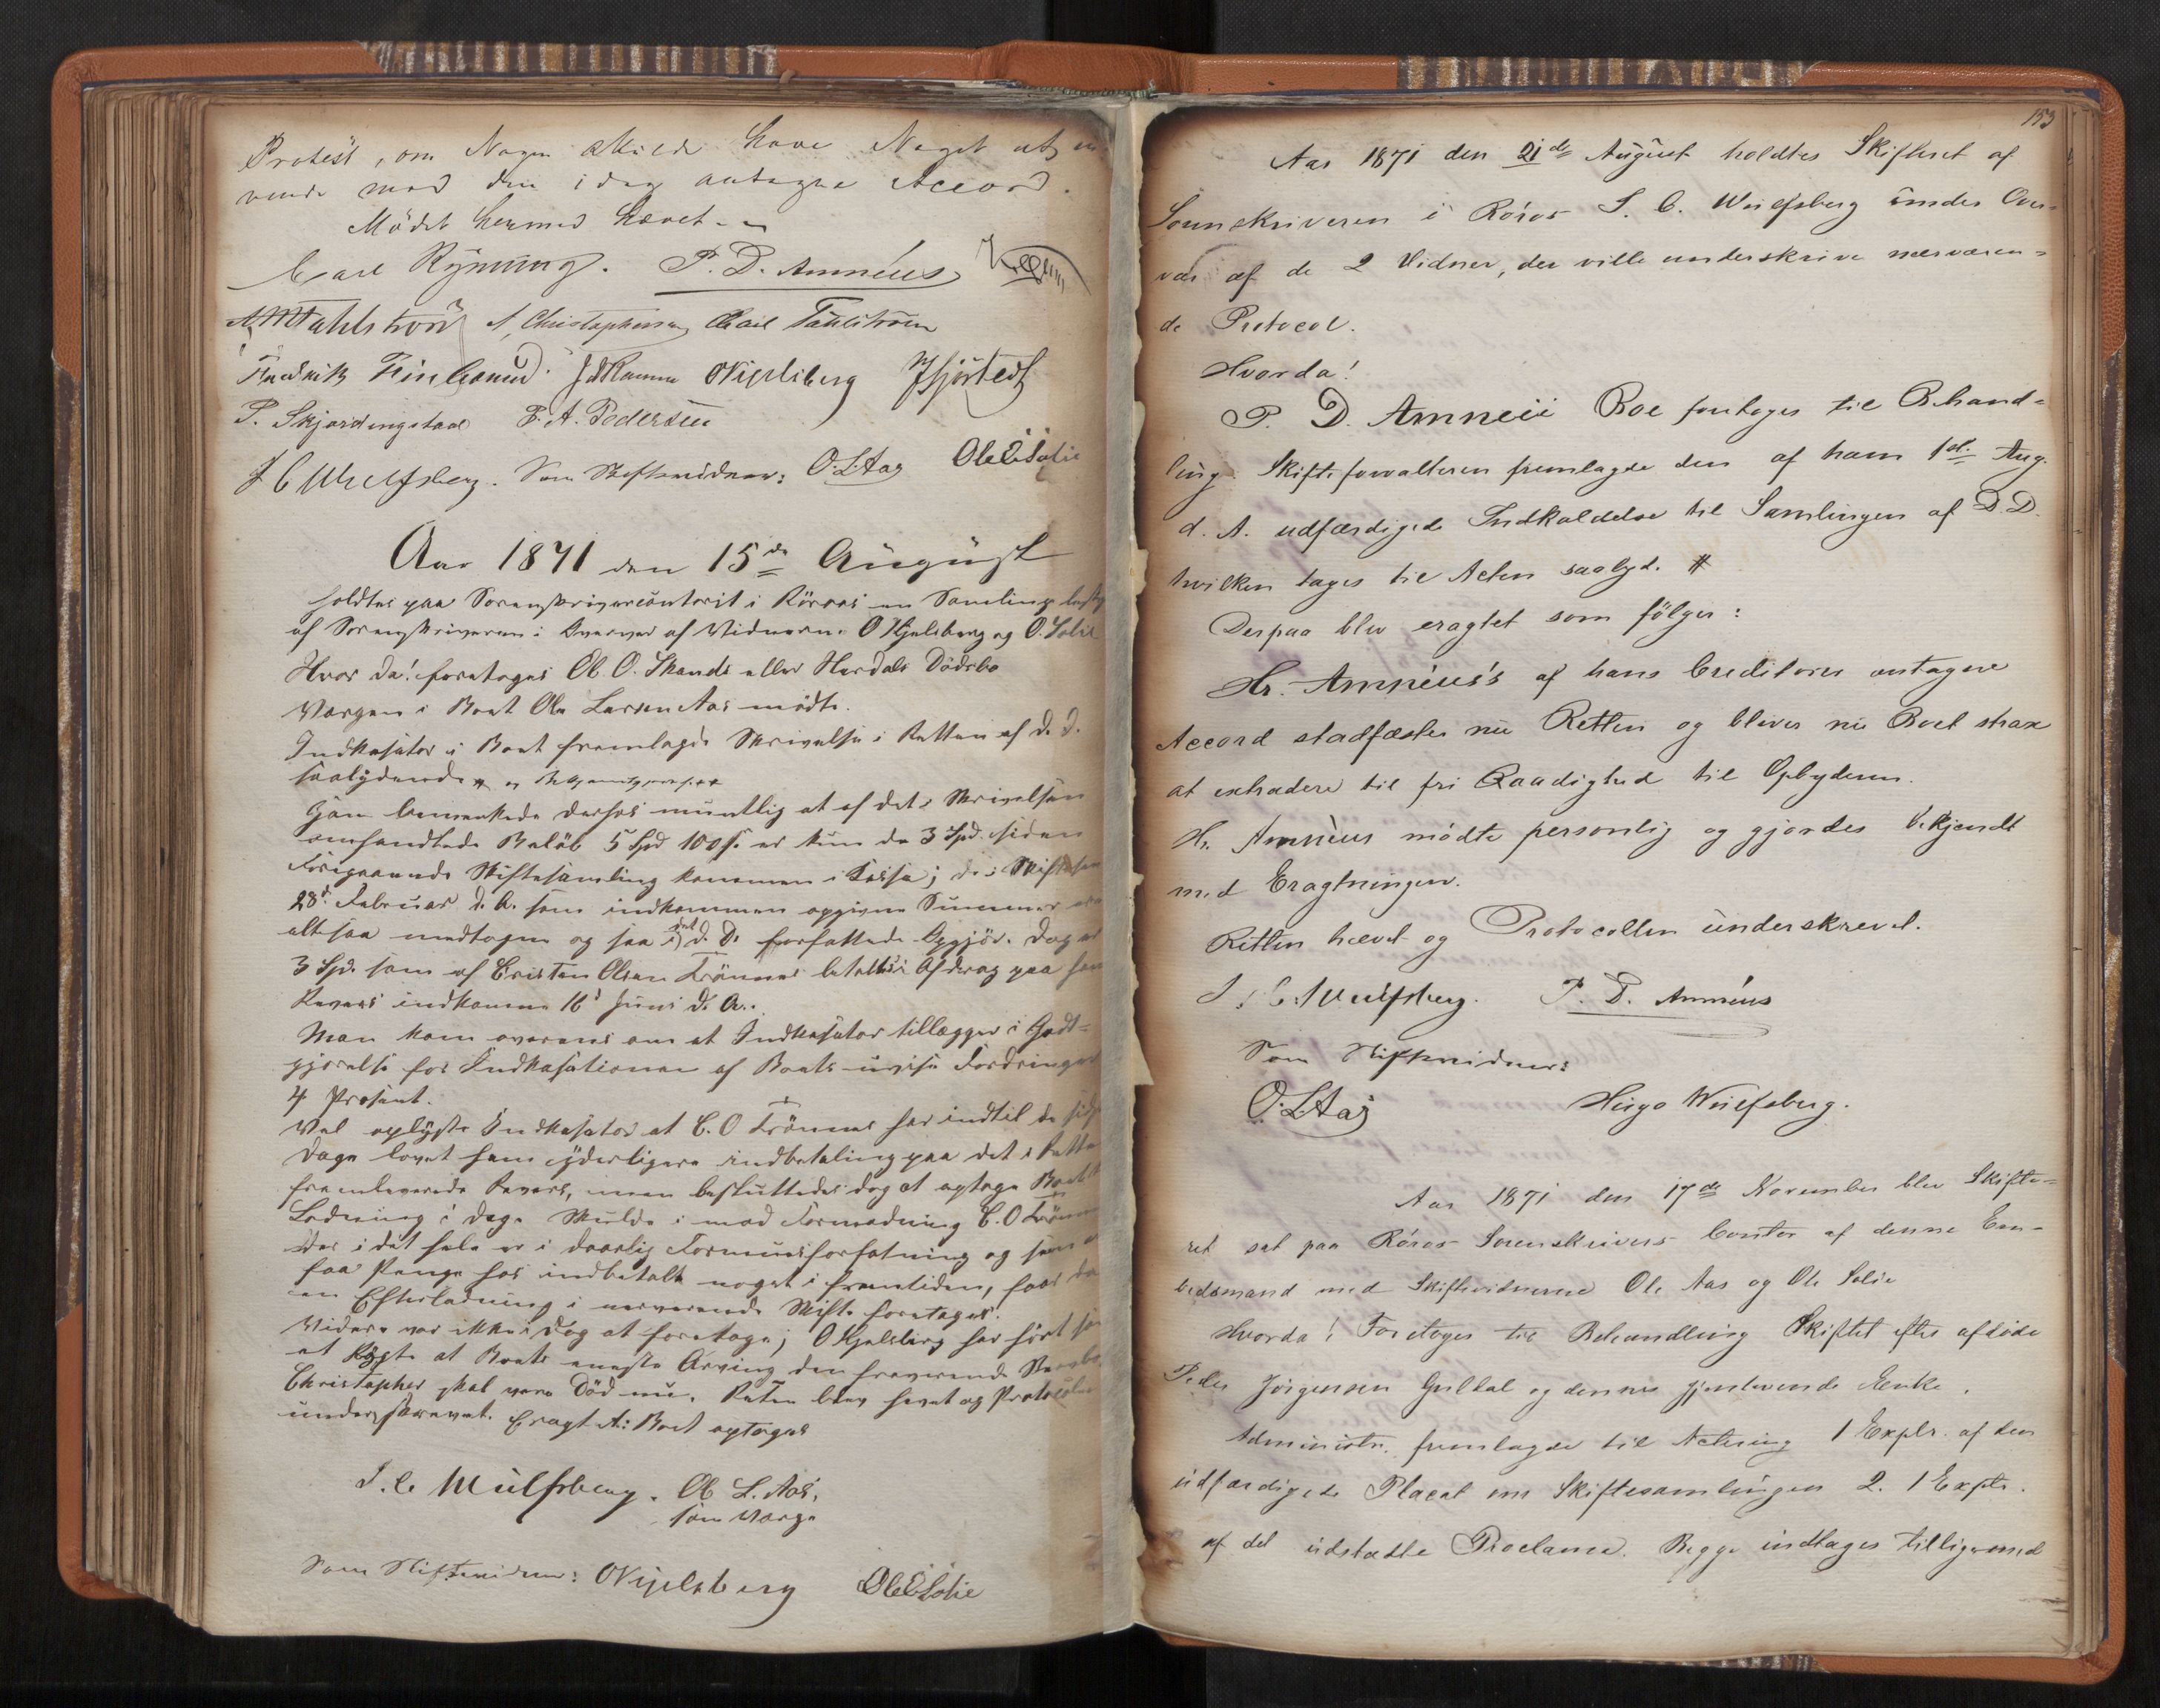 Protest, om Nogen skulde have Noget at ind
vende mod den idag antagne Accord.
Mödet hermed hævet.
Carl Rÿnning. P. D. Amnéus
A Christophersen Carl Tahlström
Fredrik Finlund. OKjelsberg Hjörtedt
P. Skjærdingstad P. A. Pedersen
J C Wulfsberg. Som Skiftevidner: O.L.Aas OleESolie
Aar 1871 den 15de August
holdtes paa Sorenskrivercontoret i Röraas en Samling
af Sorenskriveren i Overvær af Vidnerne O Kjelsberg og O. Solie
Hvor da! foretoges Ol. O. Skands eller Hardals Dödsbo
Værgen i Boet Ole Larsen Aas mödte.
Indkasator i Boet fremlagde Skrivelse i Retten af d. D.
saalydende #
Han bemærkede derhos mundtlig at af det i Skrivelsen
omhandlede Belöb 5 Spd 100 s. er kun de 3 Spd. siden
Foregaaende Skiftesamling kommen i Kassa; de i
28d Februar d. A. som indkommen opgivne Summer
altsaa medtagne og saa i det d. D. forfattede Opgjör. Dog er
3 Spd. som af Cristen Olsen Trönnes betaltes i Afdrag paa
Revers indkomne 16d Juni d. A..
Man kom overens om at Indkasator tillægges i Godt-
gjörelse for Indkasationen af Boets uvisse Fordringer
4 Prosent.
Vel oplyste Indkasator at C. O Trönnes har indtil de
Dage lovet ham yderligere indbetaling paa det i Retten
fremleverede Revers, men besluttedes dog at optage Boet til
Slutning i dag. Skulde i mod Formodning C. O
der i det hele er i daarlig Formuesforfatning og
faa Penge hos indbetalt noget i fremtiden, faar da
en Efterladning i nærværende Skifte foretages.
Videre var ikke i Dag at foretage; O Kjelsberg har hört
at Rögte at Boets eneste Arving den fraværende
Christopher skal være Död nu. Retten blev hævet og Protocollen
underskrevet. Eragtet: Boet optages
J. C Wulfsberg. Ol L. Aas,
som Værge
Som Skiftevidner: OKjelsberg OleESolie
153
Aar 1871 den 21de August holdtes Skifteret af
Sorenskriveren i Röros J. C. Wulfsberg under Over-
vær af de 2 Vidner, der ville underskrive nærværen-
de Protocol.
Hvorda!
P. D. Amneii Boe foretoges til Behand-
ling. Skifteforvalteren fremlagde den af ham 1ste Aug.
d. A. udfærdigede Indkaldelse til Samlingen af D.D.
hvilken tages til Acten saalyd. #
Derpaa blev eragtet som fölger:
Hr. Amnéus's af hans Creditorer antagne
Accord stadfæstes nu Retten og bliver nu Boet strax
at extradere til fri Raadighed til Opbyderen.
Hr. Amnéus mödte personlig og gjordes bekjendt
med Eragtningen.
Retten hævet og Protocollen underskrevet.
J. C. Wulfsberg. P. D. Amnéus
Som Skiftevidner:
O.L.Aas Hugo Wulfsberg.
Aar 1871 den 17de November blev Skifte-
ret sat paa Röros Sorenskrivers Contor af denne Em-
bedsmand med Skiftevidnerne Ole Aas og Ole Solie
Hvorda! Foretoges til Behandling Skiftet efter afdöde
Peder Jörgensen Gullal og dennes gjenlevende Enke.
Administr. fremlagde til Actering 1 Explr. af den
udfærdigede Placat om Skiftesamlingen 2. 1 Explr.
af det udstædte Proclama. Begge indtages tilligemed